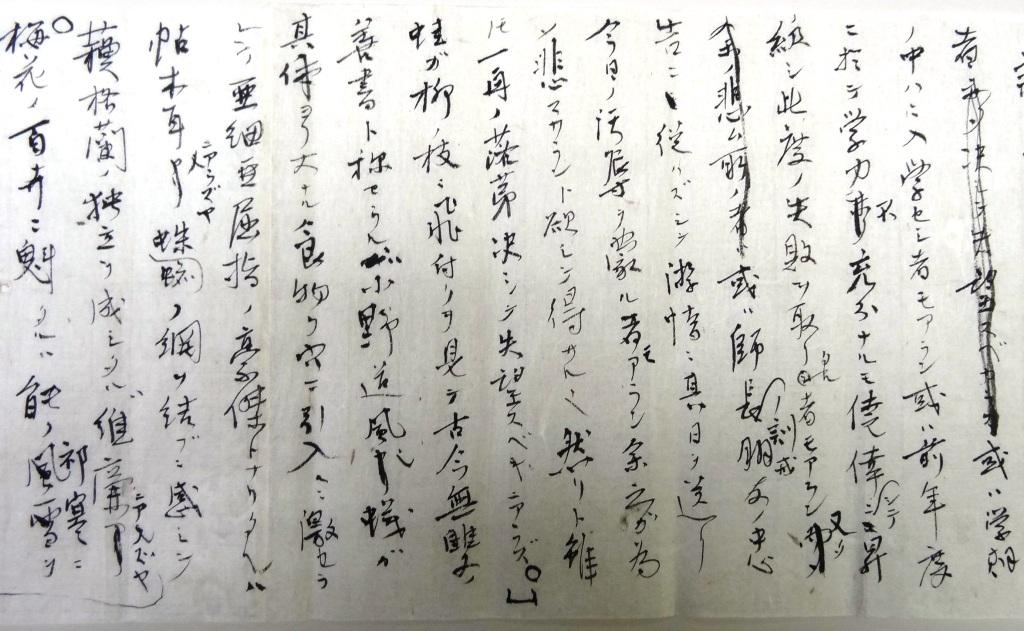 者 決シテ失望スベカラズ 或ハ学期
ノ中ハニ入学セシ者モアラン或ハ前年度
ニ於テ学力不充分ナルモ僥倖ニシテ昇
級シ此度ノ失敗ヲ取リタル者モアラン又
或ハ師長朋友ノ忠
告ニ従ハズシテ游惰ニ其日ヲ送リ
今日ノ ル者モアラン余之ガ為
ン悲マザラント欲シテ得ザルナリ然リト雖
モ一再ノ落第決シテ失望スベキニアラズ。」
蛙ガ柳ノ枝ニ飛付クヲ見テ古今無雙ノ
善書ト称セラル小野道風ヤ蟻ガ
其体ヨリ大ナル食物ヲ穴ニ引入ルニ激セラ
レテ亜細亜屈指ノ豪傑トナリタル
帖木耳ニアラズヤ 蜘蛛ノ網ヲ結ブニ感シテ
蘇格蘭ノ独立ヲ成シタル維廉ニアラズヤ
梅花ノ百卉ニ魁タルハ能ク祁寒ニ風雪ヲ